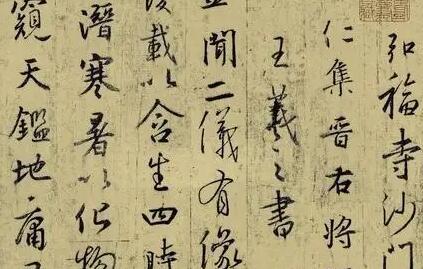 弘福寺沙門
仁集晉右將
王羲之書
聞二儀有像
載以含生四時
潛寒暑以化物
窺天鑑地庸